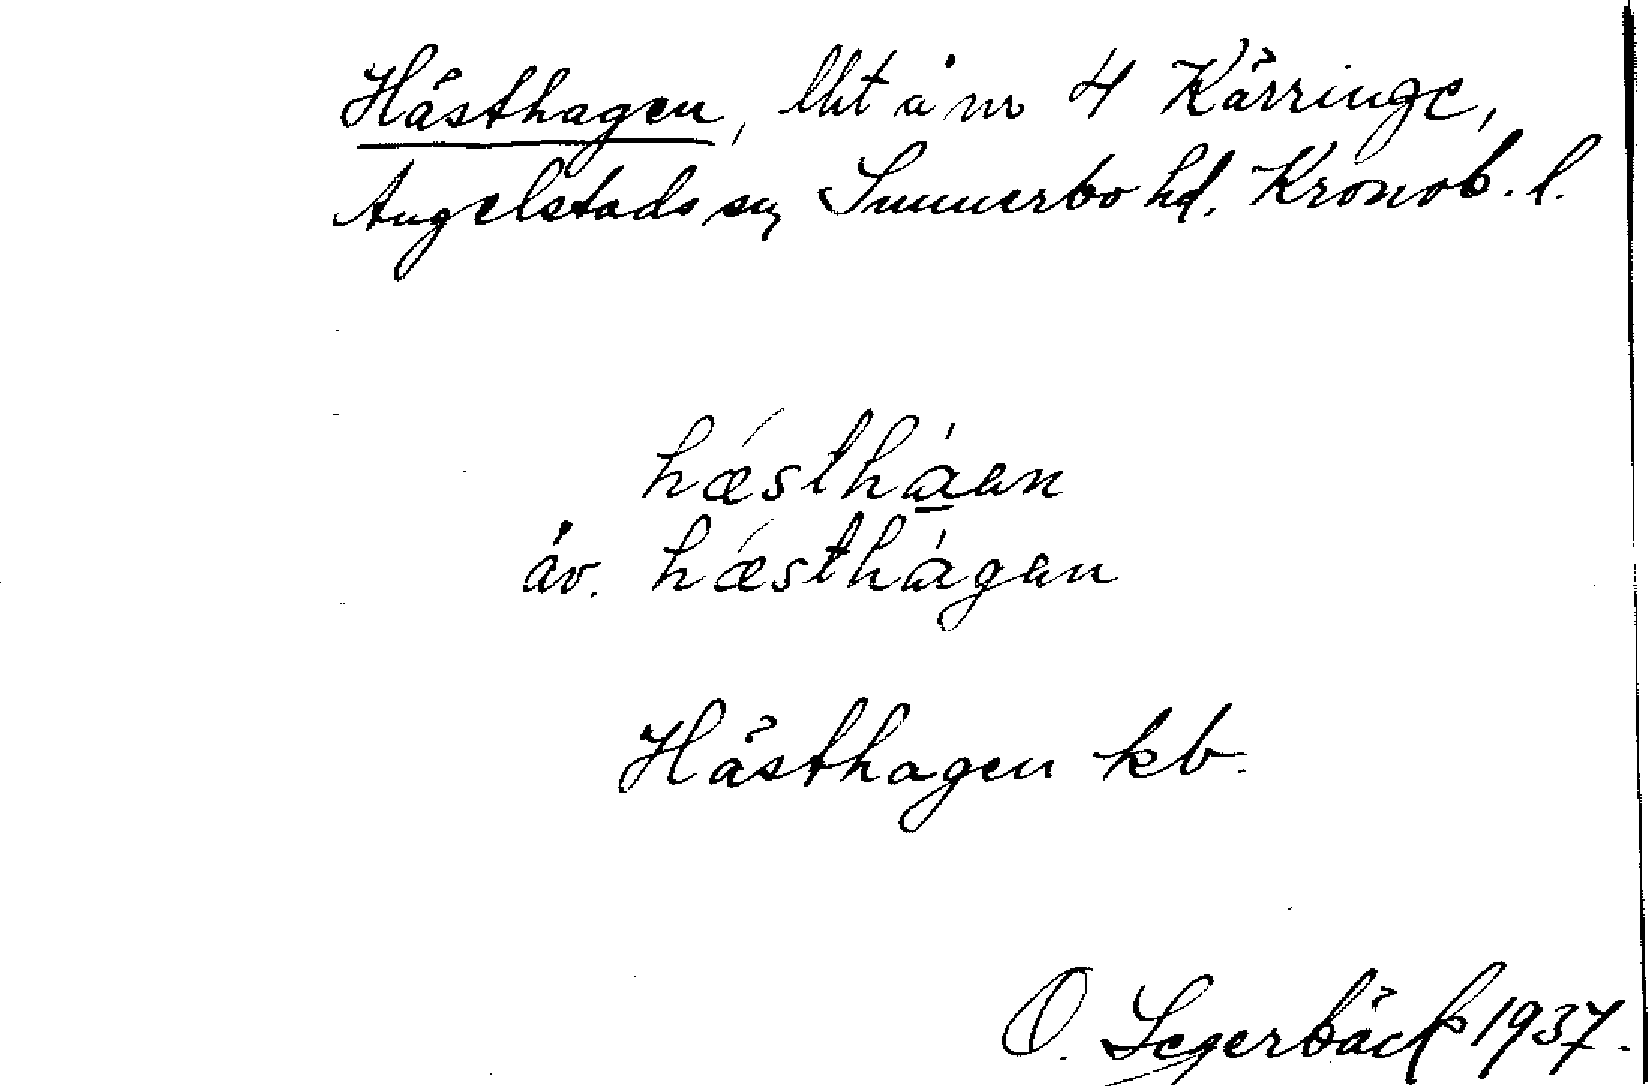 Hästhagen, lht å nr 4 Kärringe,
Angelstads sn, Sunnerbo hd. Kronob. l.
hǽsthá̲an
äv. hǽsthágan
Hästhagen kb.
O. Segerbäck 1937.